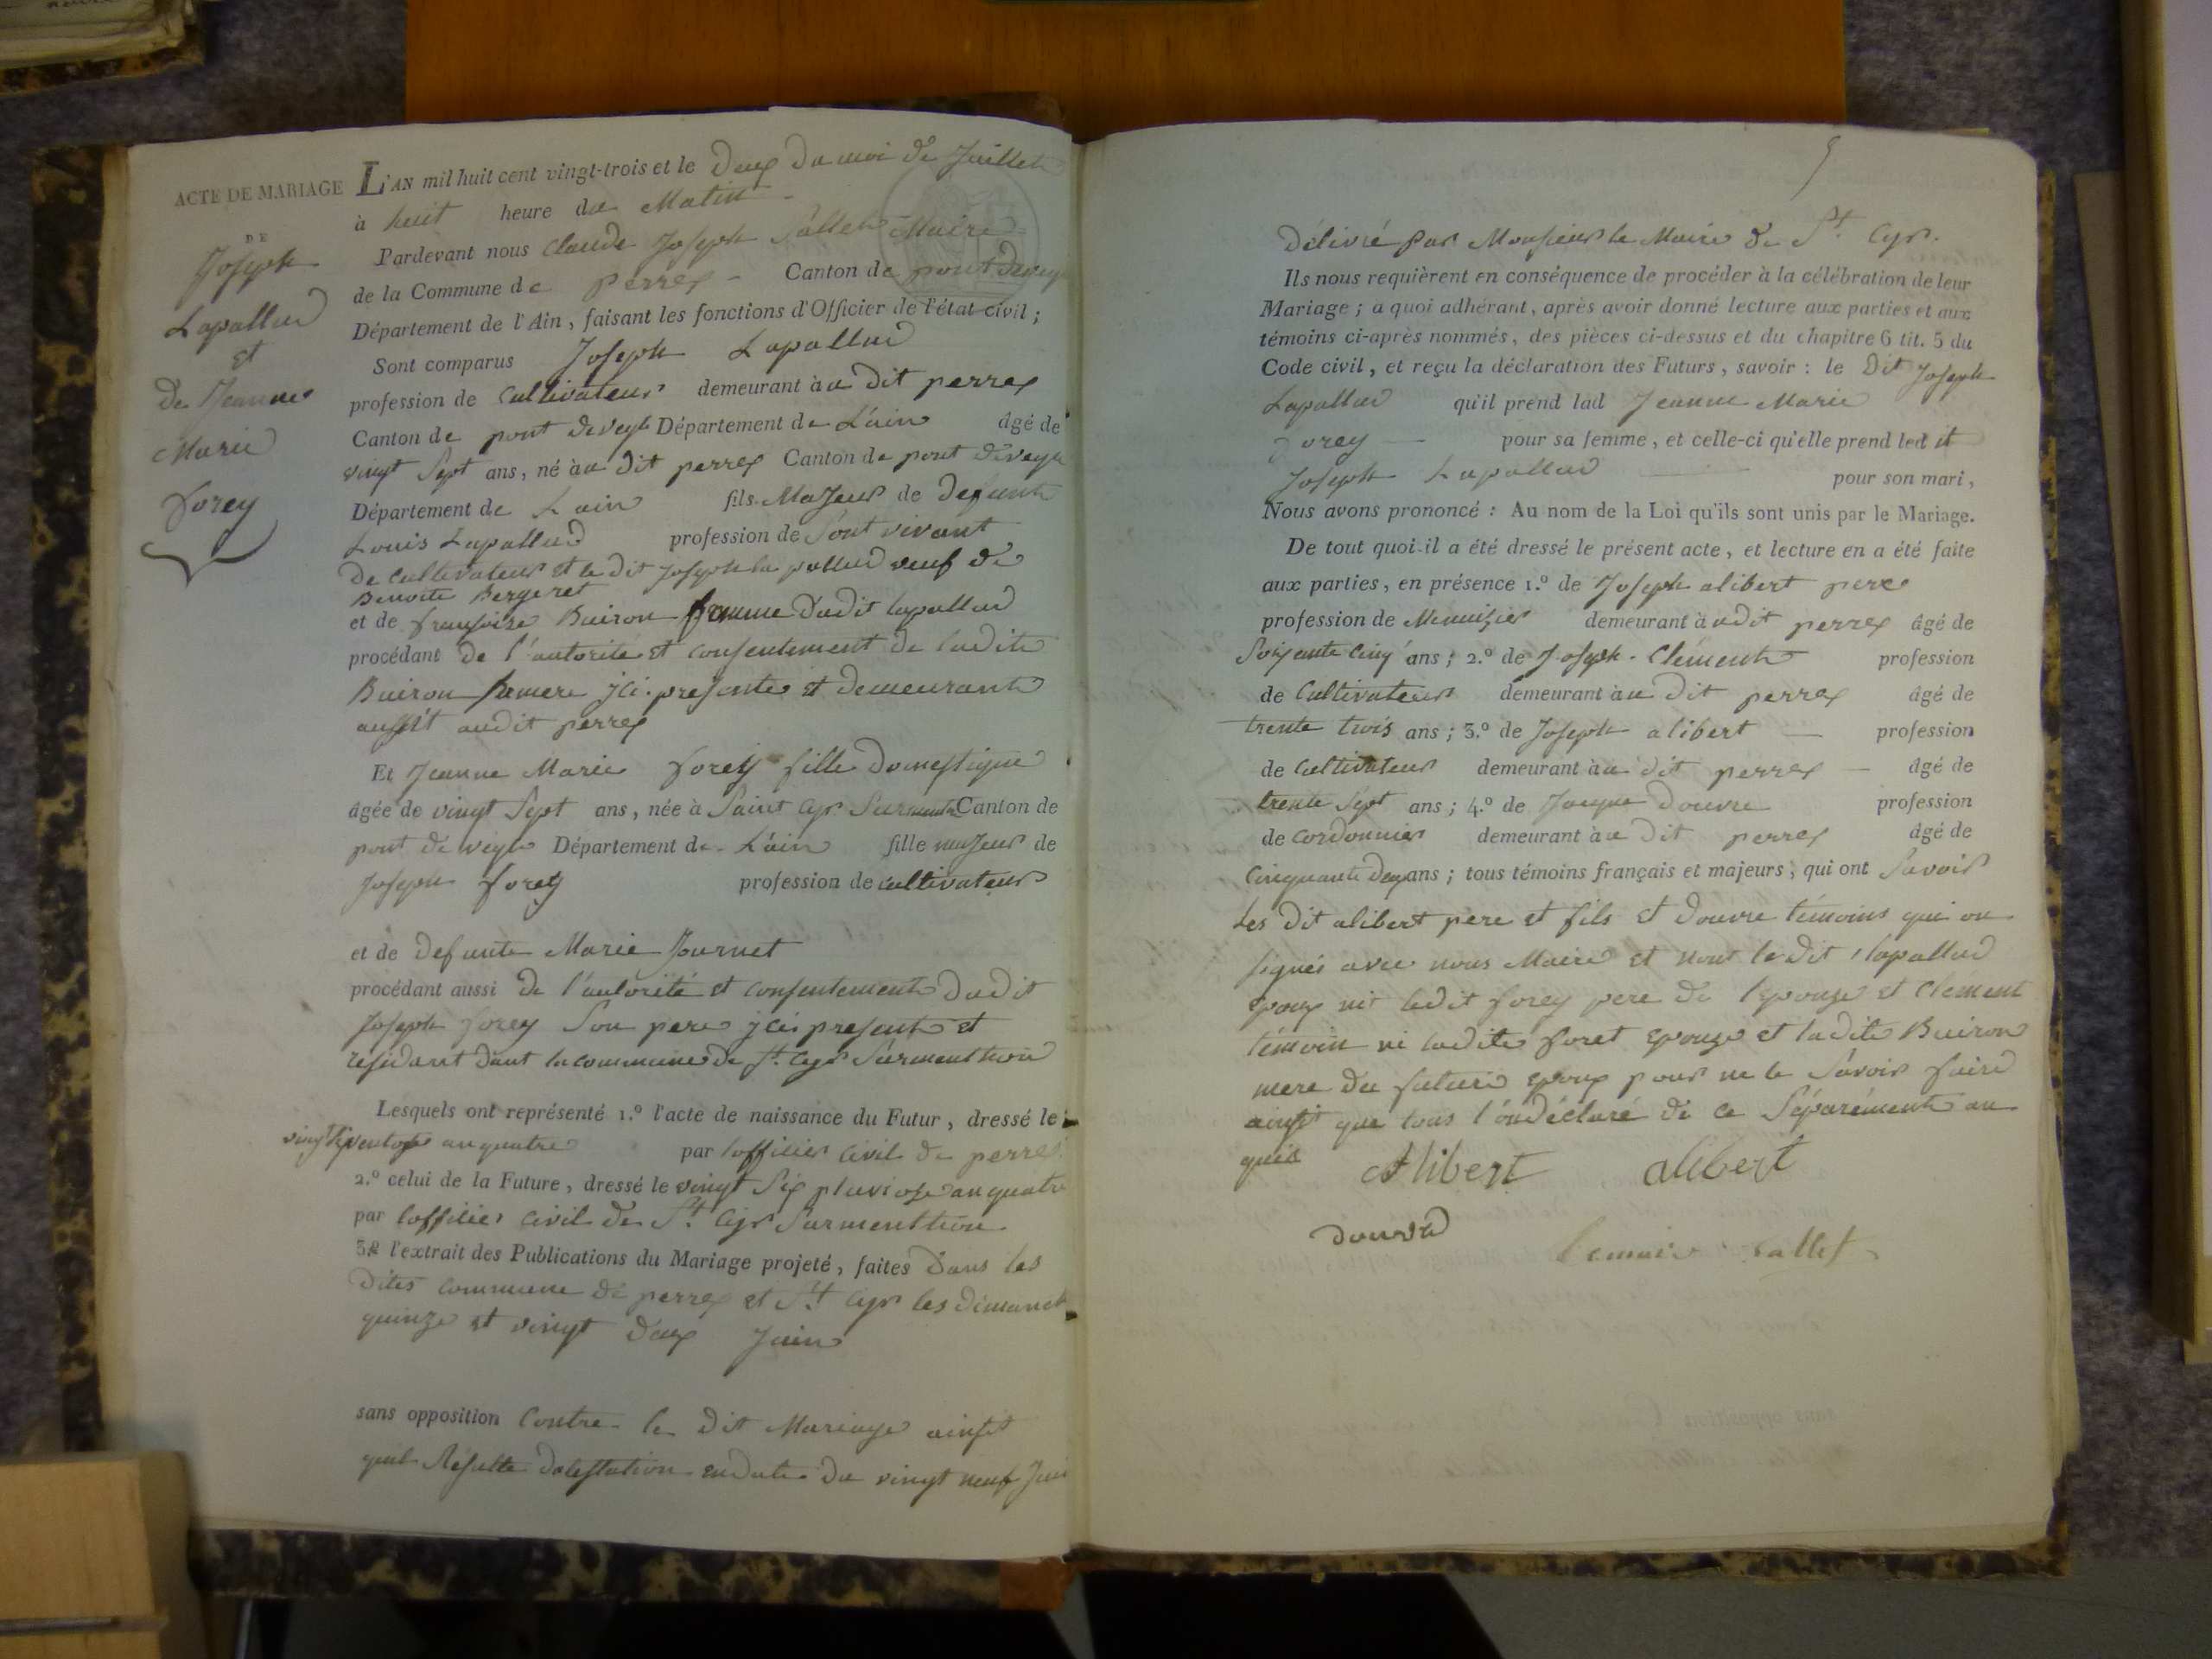 ACTE DE MARIAGE
DE
Joseph
Lapallud
et
de Jeanne
Marie
forey
L'AN mil huit cent vingt-trois et le deux du moi de Juillet
à huit heure du Matin
Pardevant nous Claude Joseph Sallet Maire
de la Commune de perrex Canton de pont deveyle
Département de l'Ain, faisant les fonctions d'Officier de l'état civil;
Sont comparus Joseph Lapallud
profession de Cultivateur demeurant à u dit perrex
Canton de pont deveyle Département de L'ain âgé de
vingt Sept ans, né à u dit perrex Canton de pont deveyle
Département de L'ain fils Majeur de defunt
Louis Lapallud profession de Sont vivant
de Cultivateur et le dit Joseph la pallud veuf de
Benoite Bergeret
et de françoise Buiron femme dudit lapallud
procédant de l'autorité et consentement de ladite
Buiron samere jci presente et demeurante
aussit audit perrex
Et Jeanne Marie forey fille domestique
âgée de vingt Sept ans, née à Saint Cyr Surmenton Canton de
pont de veyle Département de L'ain fille majeur de
Joseph forey profession de cultivateur
et de defunte Marie Journet
procédant aussi de l'autorité et consentement dudit
Joseph forey Son pere jci present et
residant dant la commune de St. Cyr Surmenthon
Lesquels ont représenté 1.º l'acte de naissance du Futur, dressé le
vingt ventose an quatre par loffilier Civil de perrex
2.º celui de la Future, dressé le vingt Six pluviose an quatre
par loffilier Civil de St. Cyr Surmenthon
3.º l'extrait des Publications du Mariage projeté, faites dans les
dites commune de perrex et St Cyr les dimanch
quinze et vingt deux Juin
sans opposition Contre le dit Mariage ainsit
quil Résulte datestation endate du vingt neuf Juin
5
délivré par Monsieur le Maire de St. Cyr.
Ils nous requièrent en conséquence de procéder à la célébration de leur
Mariage; a quoi adhérant, après avoir donné lecture aux parties et aux
témoins ci-après nommés, des pièces ci-dessus et du chapitre 6 tit. 5 du
Code civil, et reçu la déclaration des Futurs, savoir: le dit Joseph
Lapallud qu'il prend lad Jeanne Marie
forey pour sa femme, et celle-ci qu'elle prend led it
Joseph Lapallud pour son mari,
Nous avons prononcé: Au nom de la Loi qu'ils sont unis par le Mariage.
De tout quoi il a été dressé le présent acte, et lecture en a été faite
aux parties, en présence 1.º de Joseph alibert pere
profession de Menuizier demeurant à udit perrex âgé de
Soixante Cinq ans; 2.º de Joseph Clément profession
de Cultivateur demeurant à u dit perrex âgé de
trente trois ans; 3.º de Joseph alibert profession
de Cultivateur demeurant à u dit perrex âgé de
trente Sept ans; 4.º de Jacque douvre profession
de Cordonnier demeurant à u dit perrex âgé de
Cinquante deux ans; tous témoins français et majeurs; qui ont Savoir
Les dit alibert pere et fils et douvre témoins qui on
signés avec nous Maire et nont le dit lapallud
epoux nit ledit forey pere de lepouze et Clement
témoin ni ladite foret epouze et ladite Buiron
mere du futur epoux pour ne le Savoir faire
ainsit que tous l'ondéclaré de ce Séparément en
quis
Alibert alibert
douvre
le maire Sallet